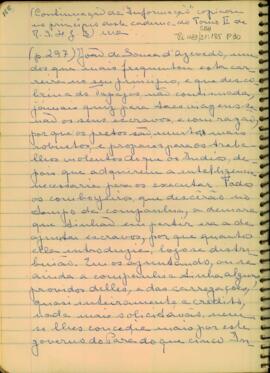 (Continuação da Informação copiou-
se principiou neste caderno do Tomo II de
(p. 297) João de Souza d'Azevedo, um
dos que mais frequentou esta car-
reira no seu principio, e que desco-
briu a de
jámais quiz para taes viagens se
não os seus escravos, e com razão,
por que os pretos são muito mais
robustos, e proprios para os traba-
lhos violentos do que os Indios, de-
pois que adquirem a intelligencia
necessaria para os executar. Todos
os comboyeiros, que desceram no
tempo da companhia, a demora
que tinham em partir era a de
ajustar escravos, por que quando
ella introduzia, logo se distri-
buiam. Em os apromptando, ou se
ainda a companhia tinha algum
providos delles, e das carregações,
quasi inteiramente a credito,
nada mais solicitavam, nem
se lhes concedia mais por este
governo do Pará do que cinco In-